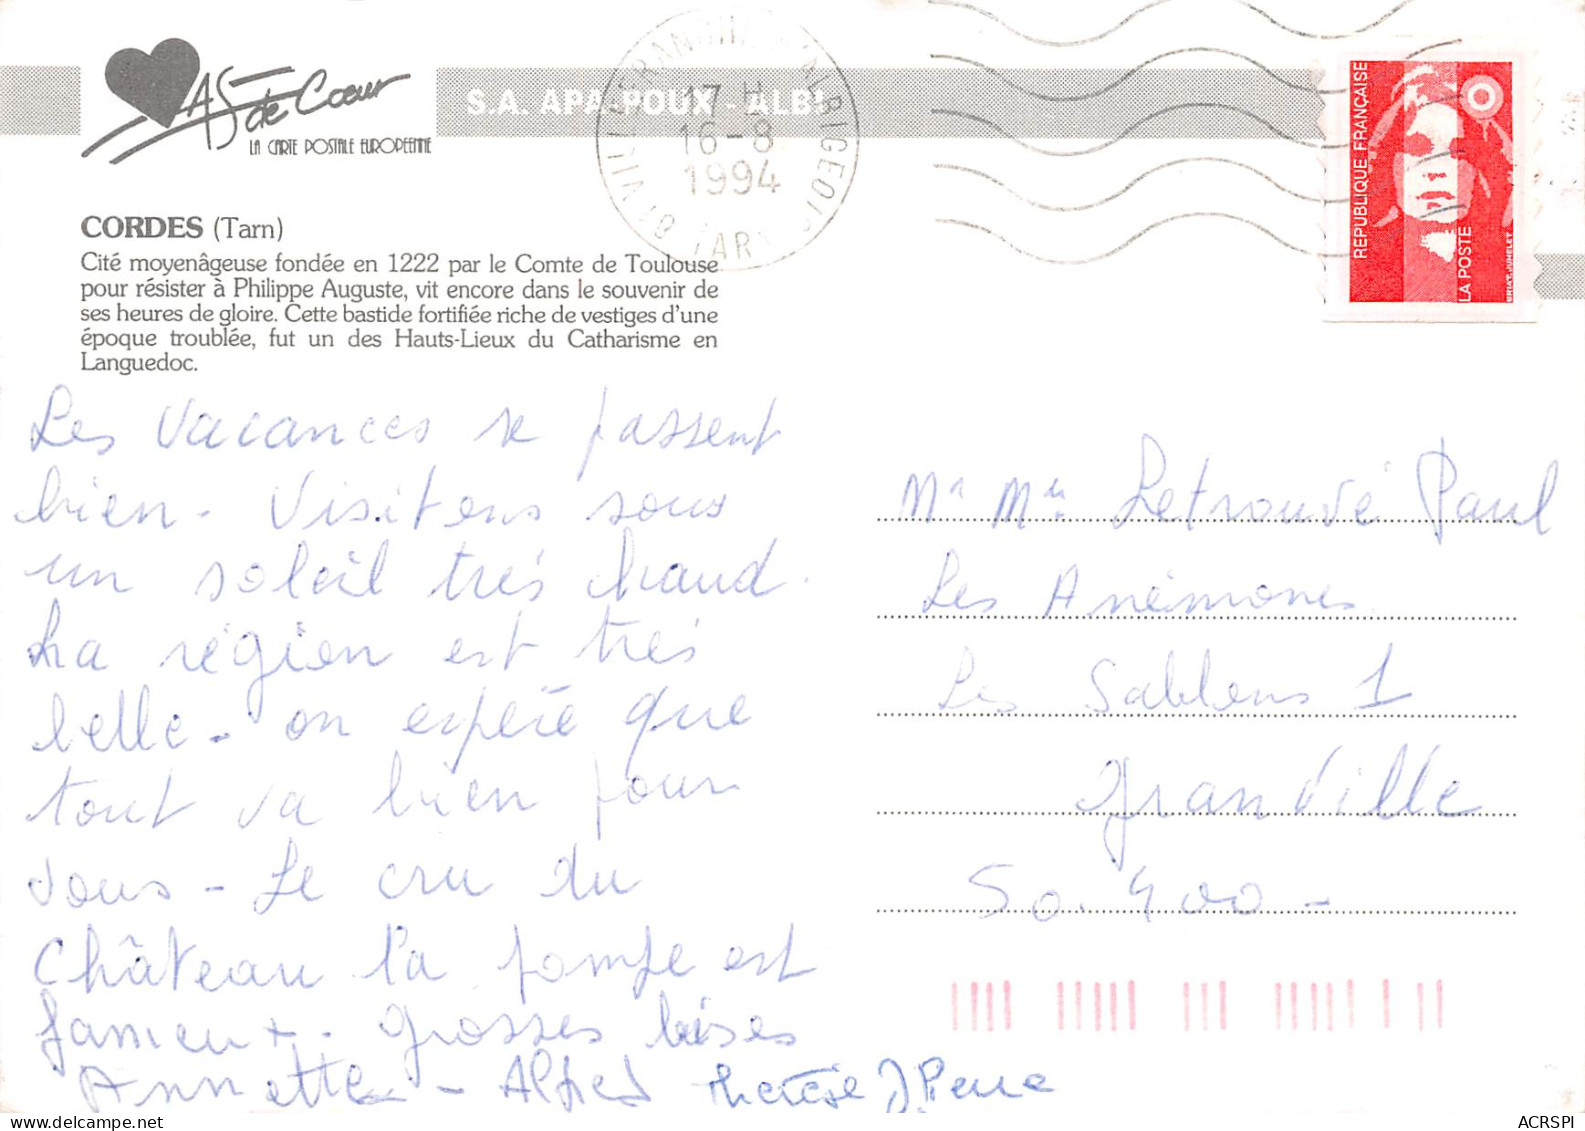 AS de Cœur
LA CARTE POSTALE EUROPÉENNE
S.A. APA-POUX - ALBI
17 H
16-8
1994
81 TARN
RÉPUBLIQUE FRANÇAISE
LA POSTE
BRIAT. JUMELET
CORDES (Tarn)
Cité moyenâgeuse fondée en 1222 par le Comte de Toulouse
pour résister à Philippe Auguste, vit encore dans le souvenir de
ses heures de gloire. Cette bastide fortifiée riche de vestiges d'une
époque troublée, fut un des Hauts-Lieux du Catharisme en
Languedoc.
Les vacances se passent
bien. Visitons sous
un soleil très chaud.
La région est très
belle - on espère que
tout va bien pour
vous - Le cru du
Château la pompe est
fameux. Grosses bises
Annette - Alfred Thérèse J. Pierre
Mr Mme Letrouvé Paul
Les Anémones
Les Sablons 1
Granville
50.400 -
ACRSPI